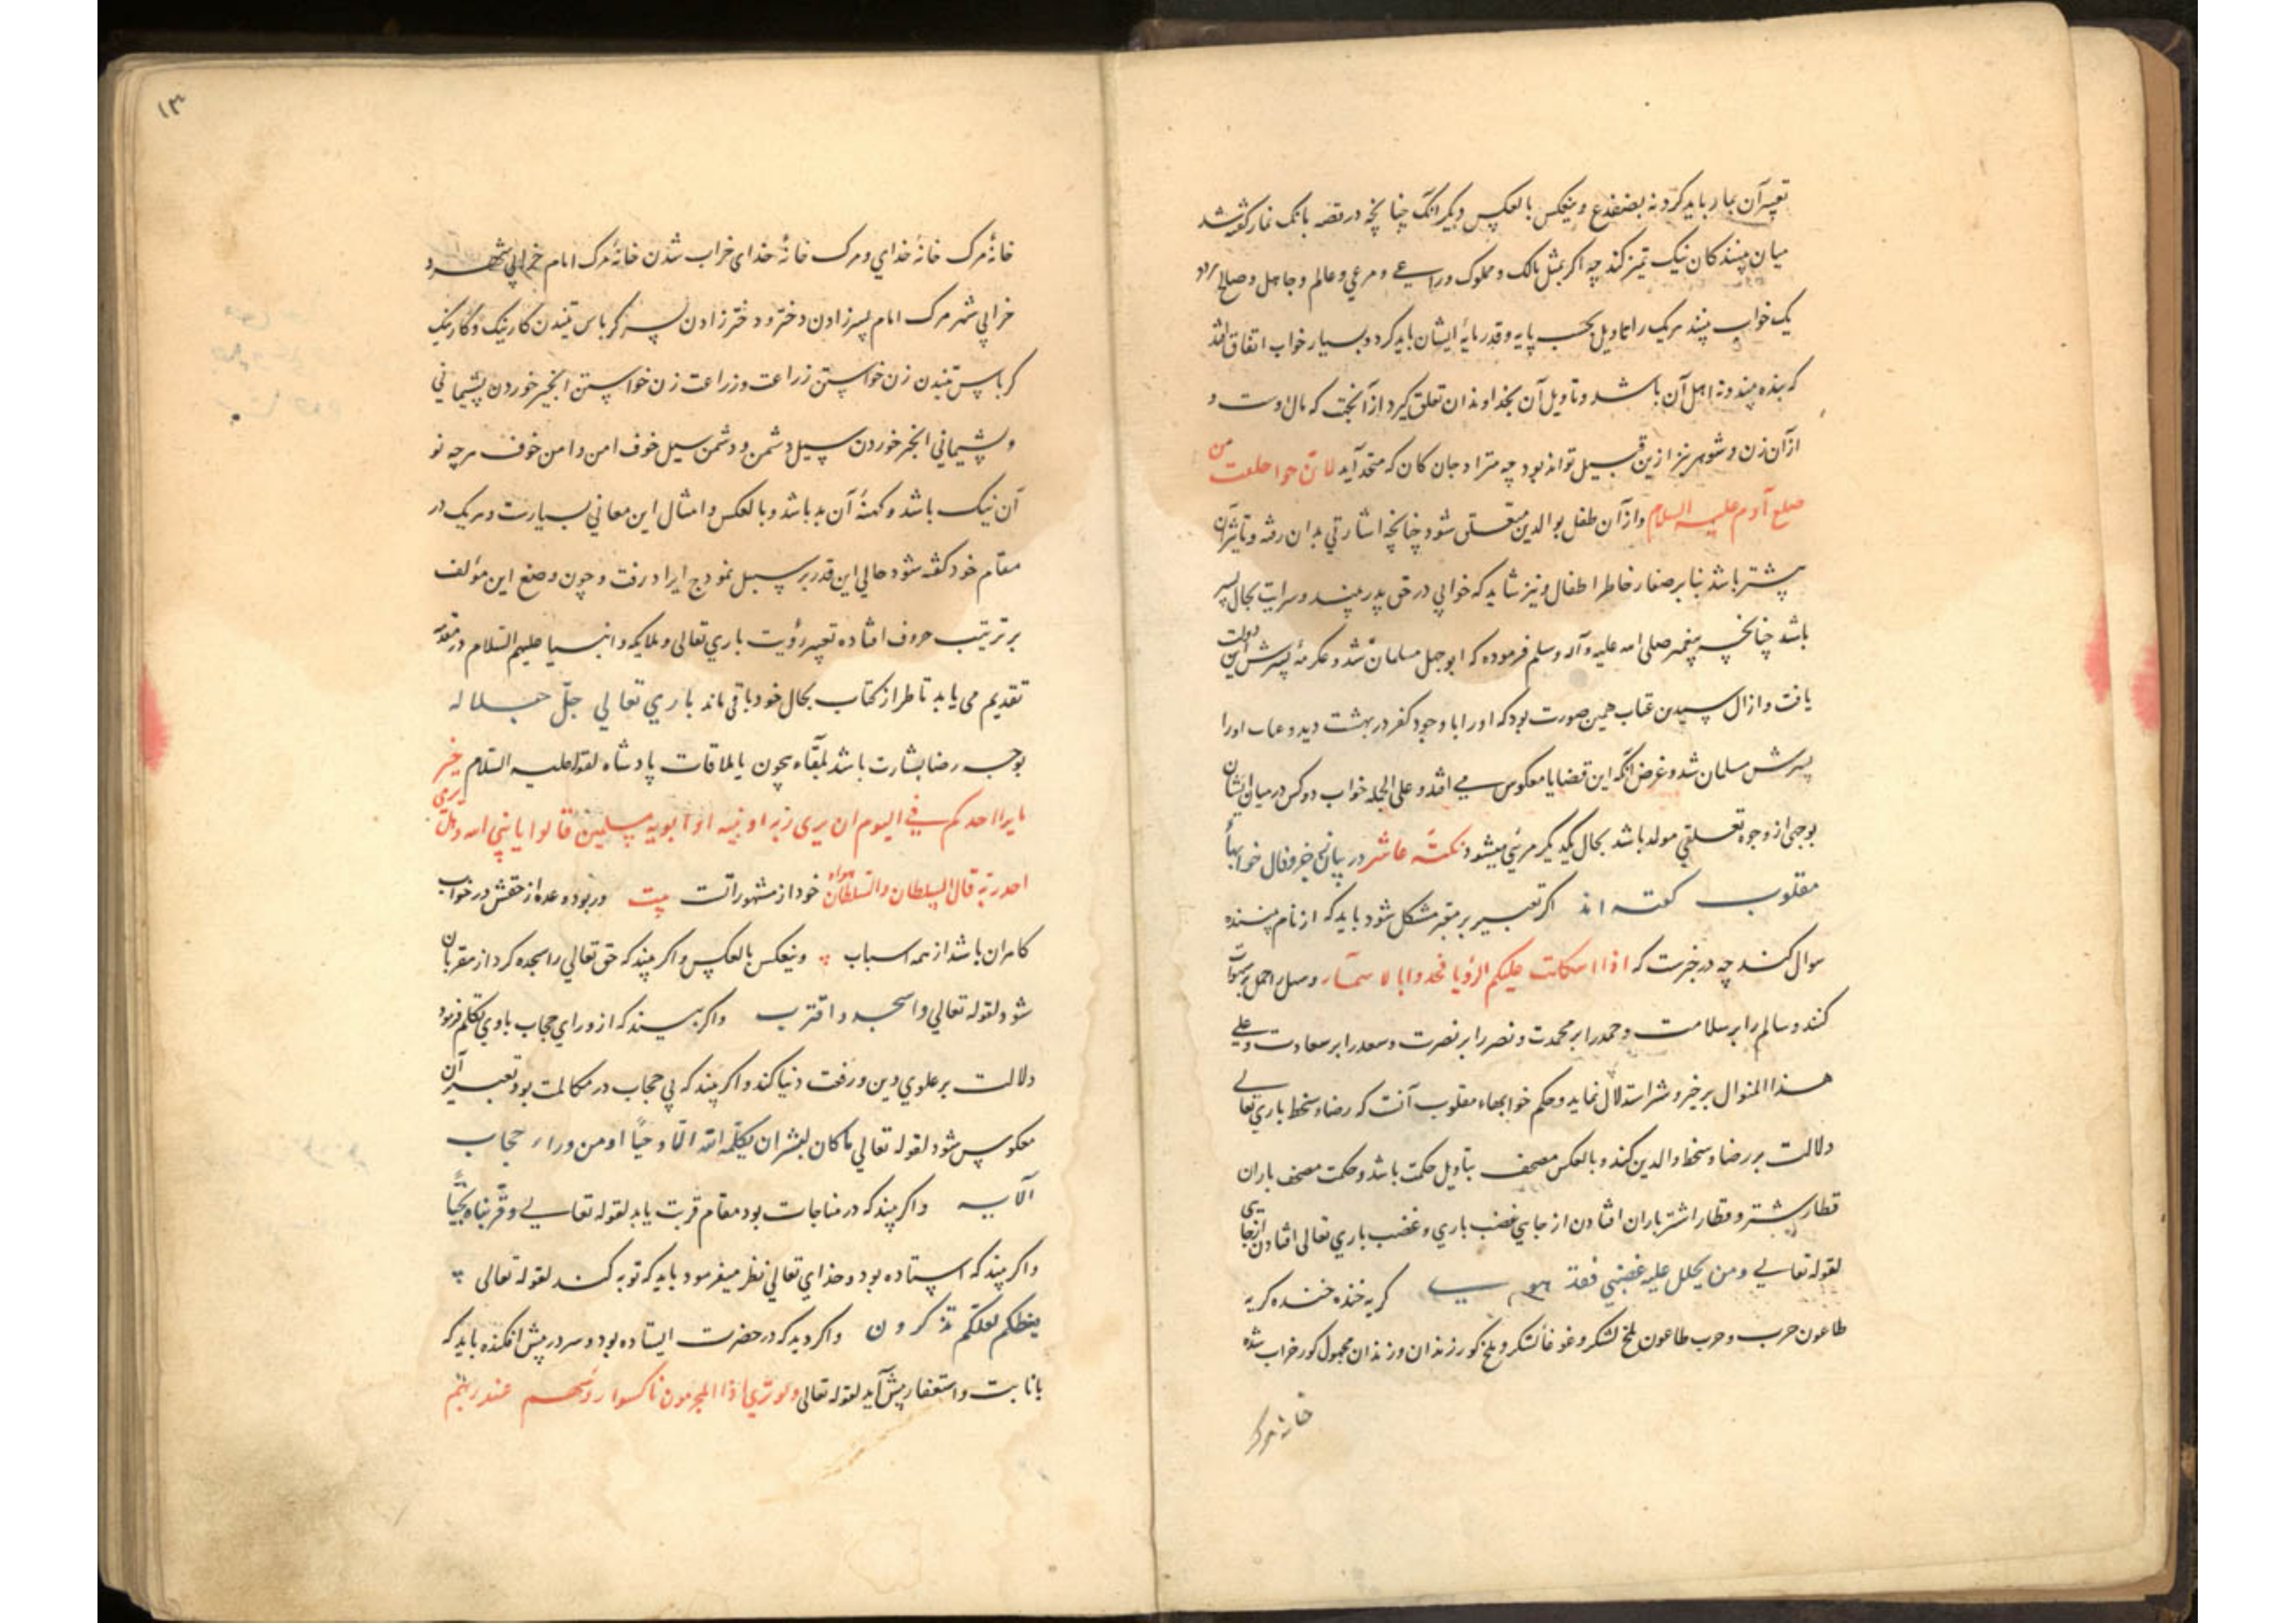 تعبیر آن بمار باید کرد نه بضفدع و ینعکس بالعکس دیگر آنک چنانچه در قصه بانک نماز گفته شد
میان بینندکان نیک تمیز کند چه اگر بمثل مالک و مملوک و راعی و مرعی و عالم و جاهل و صالح
یک خواب بینند هریک را تاویل بحسب پایه و قدر مایهٔ ایشان باید کرد و بسیار خواب اتفاق افتد
که بنده بیند و نه اهل آن باشد و تاویل آن بخداوندان تعلق گیرد از آنجهت که مال اوست و
از آن زن و شوهر نیز ازین قبیل تواند بود چه متراد جان کان که متحد آید لان حوا خلقت من
ضلع آدم علیه السلام و از آن طفل بوالدین متعلق شود چنانچه اشارتی بدان رفته و تاثیر آن
بیشتر باشد بنابر صغار خاطر اطفال و نیز شاید که خوابی در حق پدر بیند و سرایت بحال پسر
باشد چنانچه پیغمبر صلی الله علیه و آله وسلم فرموده که ابوجهل مسلمان شد و عکرمهٔ پسرش این دولت
یافت و ازال سیدن عتاب همین صورت بود که او را با وجود کفر در بهشت دید و عتاب او را
پسرش مسلمان شد و غرض آنکه این قضایا معکوس می افتد و علی الجمله خواب دو کس در میان ایشان
بوجهی از وجوه تعلقی مولد باشد بحال یکدیگر مرئی میشود نکتهٔ عاشر در بیان خیر و فال خوابها
مقلوب گفته اند اگر تعبیر بر معبر مشکل شود باید که از نام بیننده
سوال کند چه در خبرست که اذا اشکلت علیکم الرؤیا فخذوا بالاسماء و سهل را حمل بر سهولت
کنند و سالم را بر سلامت و حمد را بر محمدت و نصر را بر نصرت و سعد را بر سعادت و علی
هذا المنوال بر خیر و شر استدلال نماید و حکم خوابهاء مقلوب آنست که رضا و سخط باری تعالی
دلالت بر رضا و سخط والدین کند و بالعکس مصحف بتاویل حکمت باشد و حکمت مصحف باران
قطار شتر و قطار اشتر باران افتادن از جایی غضب باری و غضب باری تعالی افتادن از جایی
لقوله تعالی و من یحلل علیه غضبی فقد هوی گریه خنده خنده گریه
طاعون حرب و حرب طاعون ملخ لشکر و غوغا لشکر و ملخ گور زندان و زندان مجهول گور خراب شده
خانه مرک
۱۳
خانهٔ مرک خانهٔ خدای و مرک خانهٔ خدای خراب شدن خانهٔ مرک امام خرابی شهر و
خرابی شهر مرک امام پسر زادن دختر و دختر زادن پسر کرباس تنیدن کارتنک و کارتنک
کرباس تنیدن زن خواستن زراعت و زراعت زن خواستن انجیر خوردن پشیمانی
و پشیمانی انجیر خوردن سیل دشمن و دشمن سیل خوف امن و امن خوف هرچه نو
آن نیک باشد و کهنهٔ آن بد باشد و بالعکس و امثال این معانی بسیارست و هریک در
مقام خود گفته شود حالی این قدر بر سبیل نمودج ایراد رفت و چون وضع این مؤلف
بر ترتیب حروف افتاده تعبیر رؤیت باری تعالی و ملایکه و انبیا علیهم السلام در مقدمه
تقدیم می یابد تا طراز کتاب بحال خود باقی ماند باری تعالی جلّ جلاله
بوجه رضا بشارت باشد بلقاء بیچون یا ملاقات پادشاه لقوله علیه السلام خیر
ما یرا احدکم فی الیوم ان یری ربه او نبیه او ابویه مسلمین قالوا یا نبی الله و هل یری
احد ربه قال السلطان والسلطان هواه خود از مشهوراتست بیت و ربود و عده از حقش در خواب
کامران باشد از همه اسباب و ینعکس بالعکس و اگر بیند که حق تعالی را سجده کرد از مقربان
شود لقوله تعالی واسجد و اقترب و اگر بیند که از ورای حجاب با وی تکلم فرمود
دلالت بر علوی دین و رفعت دنیا کند و اگر بیند که بی حجاب در مکالمت بود تعبیر آن
معکوس شود لقوله تعالی ما کان لبشر ان یکلّمه الله الّا وحیًا او من وراء حجاب
الآیه و اگر بیند که در مناجات بود مقام قربت یابد لقوله تعالی و قربناه نجیًّا
و اگر بیند که استاده بود و خدای تعالی نظر میفرمود باید که توبه کند لقوله تعالی
یعظکم لعلکم تذکرون و اگر دید که در حضرت ایستاده بود و سر در پیش افکنده باید که
بانابت و استغفار پیش آید لقوله تعالی ولو تری اذ المجرمون ناکسوا رؤسهم عند ربهم